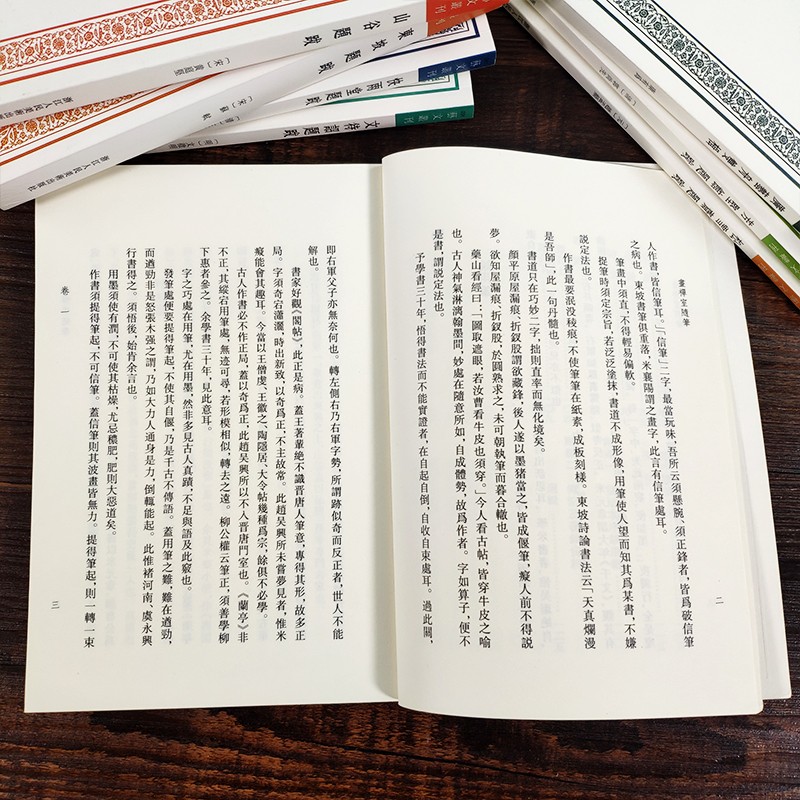 畫禪室隨筆
人作書，皆信筆耳。「信筆」二字，最當玩味，吾所云須懸腕、須正鋒者，皆爲破信筆
之病也。東坡書筆俱重落，米襄陽謂之畫字，此言有信筆處耳。
筆畫中須直，不得輕易偏軟。
捉筆時須定宗旨，若泛泛塗抹，書道不成形像，用筆使人望而知其爲某書，不嫌
説定法也。
作書最要泯没稜痕，不使筆筆在紙素，成板刻樣。東坡詩論書法云「天真爛漫
是吾師」，此一句丹髓也。
書道只在巧妙二字，拙則直率而無化境矣。
顔平原屋漏痕、折釵股，謂欲藏鋒，後人遂以墨猪當之，皆成偃筆，癡人前不得説
夢。欲知屋漏痕、折釵股，於圓熟求之，未可朝執筆而暮合轍也。
藥山看經曰：「圖取遮眼，若汝曹看牛皮也須穿。」今人看古帖，皆穿牛皮之喻
也。古人神氣淋漓翰墨間，妙處在隨意所如，自成體勢，故爲作者。字如算子，便不
是書，謂説定法也。
予學書三十年，悟得書法而不能實證者，在自起自倒，自收自束處耳。過此關，
二
即右軍父子亦無奈何也。轉左側右乃右軍字勢，所謂跡似奇而反正者，世人不能
解也。
書家好觀《閣帖》，此正是病。蓋王著輩絶不識晉唐人筆意，專得其形，故多正
局。字須奇宕瀟灑，時出新致，以奇爲正，不主故常。此趙吳興所未嘗夢見者，惟米
癡能會其趣耳。今當以王僧虔、王徽之、陶隱居、大令帖幾種爲宗，餘俱不必學。
古人作書必不作正局，蓋以奇爲正，此趙吳興所以不入晉唐門室也。《蘭亭》非
不正，其縱宕用筆處，無迹可尋，若形模相似，轉去之遠。柳公權云筆正，須善學柳
下惠者參之。余學書三十年，見此意耳。
字之巧處在用筆，尤在用墨，然非多見古人真蹟，不足與語及此竅也。
發筆處便要提得筆起，不使其自偃，乃是千古不傳語。蓋用筆之難，難在遒勁，
而遒勁非是怒張木强之謂，乃如大力人通身是力，倒輒能起。此惟褚河南、虞永興
行書得之。須悟後，始肯余言也。
用墨須使有潤，不可使其枯燥，尤忌穠肥，肥則大惡道矣。
作書須提得筆起，不可信筆。蓋信筆則其波畫皆無力。提得筆起，則一轉一束
卷一
三
山谷題跋
〔宋〕黄庭堅
浙江人民美術出版社
東坡題跋
〔宋〕蘇軾
浙江人民美術出版社
快雨堂題跋
藝文叢刊
文待詔題跋
〔明〕文徵明
藝文叢刊